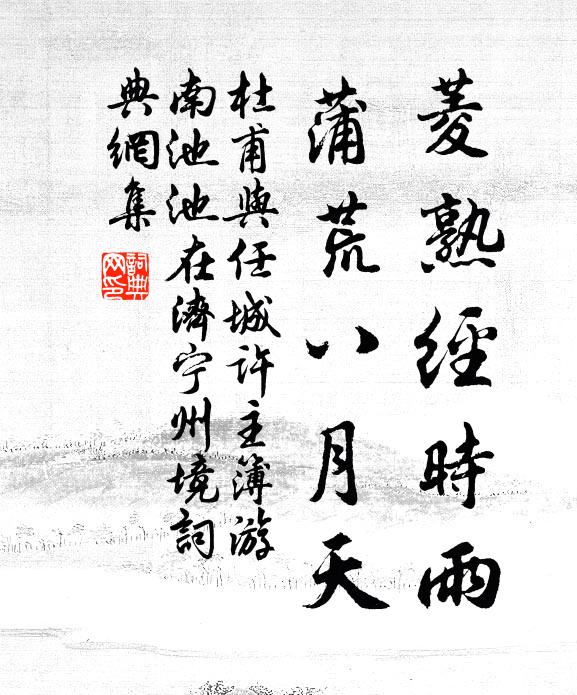 菱熟經時雨
蒲荒八月天
杜甫與任城許主簿游
南池池在濟宁州境詞
典網集
詞典
网印